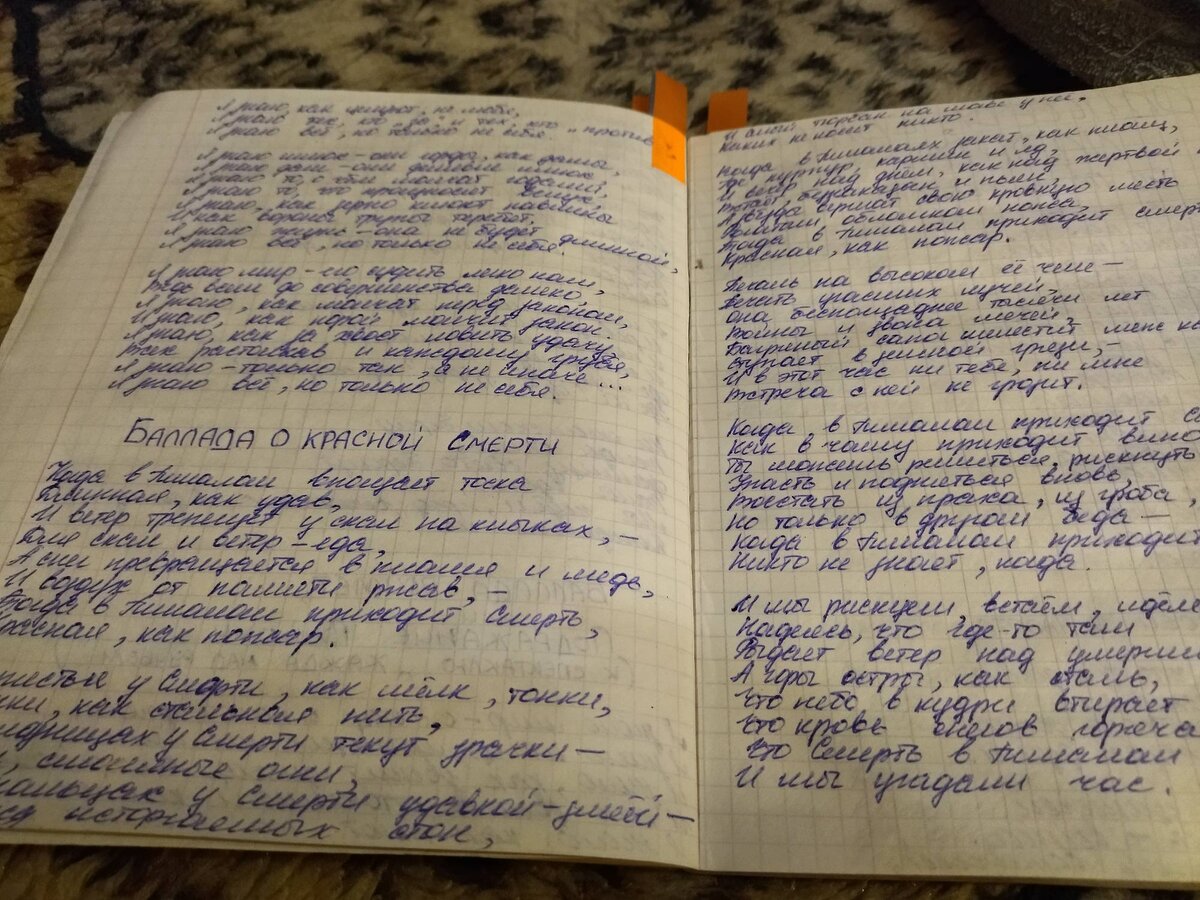 Я знаю, как
Я знаю тех, кто „за“ и тех, кто „против“
Я знаю всё, но только не себя.
Я знаю
Я знаю дам – они
Я знаю то, о чём молчат
Я знаю то, что произносит
Я знаю, как зерно клюют павлины
И как вороны трупы теребят.
Я знаю жизнь – она не будет длинной,
Я знаю всё, но только не себя.
Я знаю мир – его судить легко нам,
Ведь всем до совершенства далеко,
Я знаю, как молчат перед законом,
И знаю, как порой молчит закон
Я знаю, как за хвост ловить удачу,
Всех растолкав и каждому грубя,
Я знаю – только так, а не иначе...
Я знаю всё, но только не себя.
БАЛЛАДА О КРАСНОЙ СМЕРТИ
Когда в Гималаи вползает тоска
Длинная, как удав,
И ветер трепещет у скал на клыках, –
Для скал и ветер – еда,
А снег превращается в пламя и медь,
И воздух от памяти ржав, –
Тогда в Гималаи приходит Смерть,
Красная, как пожар.
у Смерти, как шёлк, тонки,
как стальная нить,
у Смерти текут зрачки –
огни,
у Смерти удавкой-змеёй –
исторгаемых стон,
И алый тюрбан на главе у нее,
Каких не носит никто.
Когда в Гималаях закат, как плащ,
Где пурпур, кармин и лёд,
И ветер над днём, как над жертвой
безнаказан и пьян,
свершат свою кровную месть
обломком ножа,
Тогда в Гималаи приходит смерть
Красная, как пожар.
Печаль на высоком её челе –
Печать угасших лучей,
Она беспощаднее тысячи лет
Войны и звона мечей,
Багряный сапог
Ступает в земной грязи, –
И в этот час ни тебе, ни мне
Встреча с ней не грозит.
Когда в Гималаи приходит
Как в чашу приходит вино
Ты можешь решиться, рискнуть
Упасть и подняться вновь,
Восстать из праха, из гроба,
Но только в другом беда –
Когда в Гималаи приходит
Никто не знает, когда.
И мы рискуем, встаём, идём
Надеясь, что где-то там
Рыдает ветер над
А горы остры, как сталь,
Что небо в кудри втирает
Что кровь
Что Смерть в Гималаи
И мы угадали час.